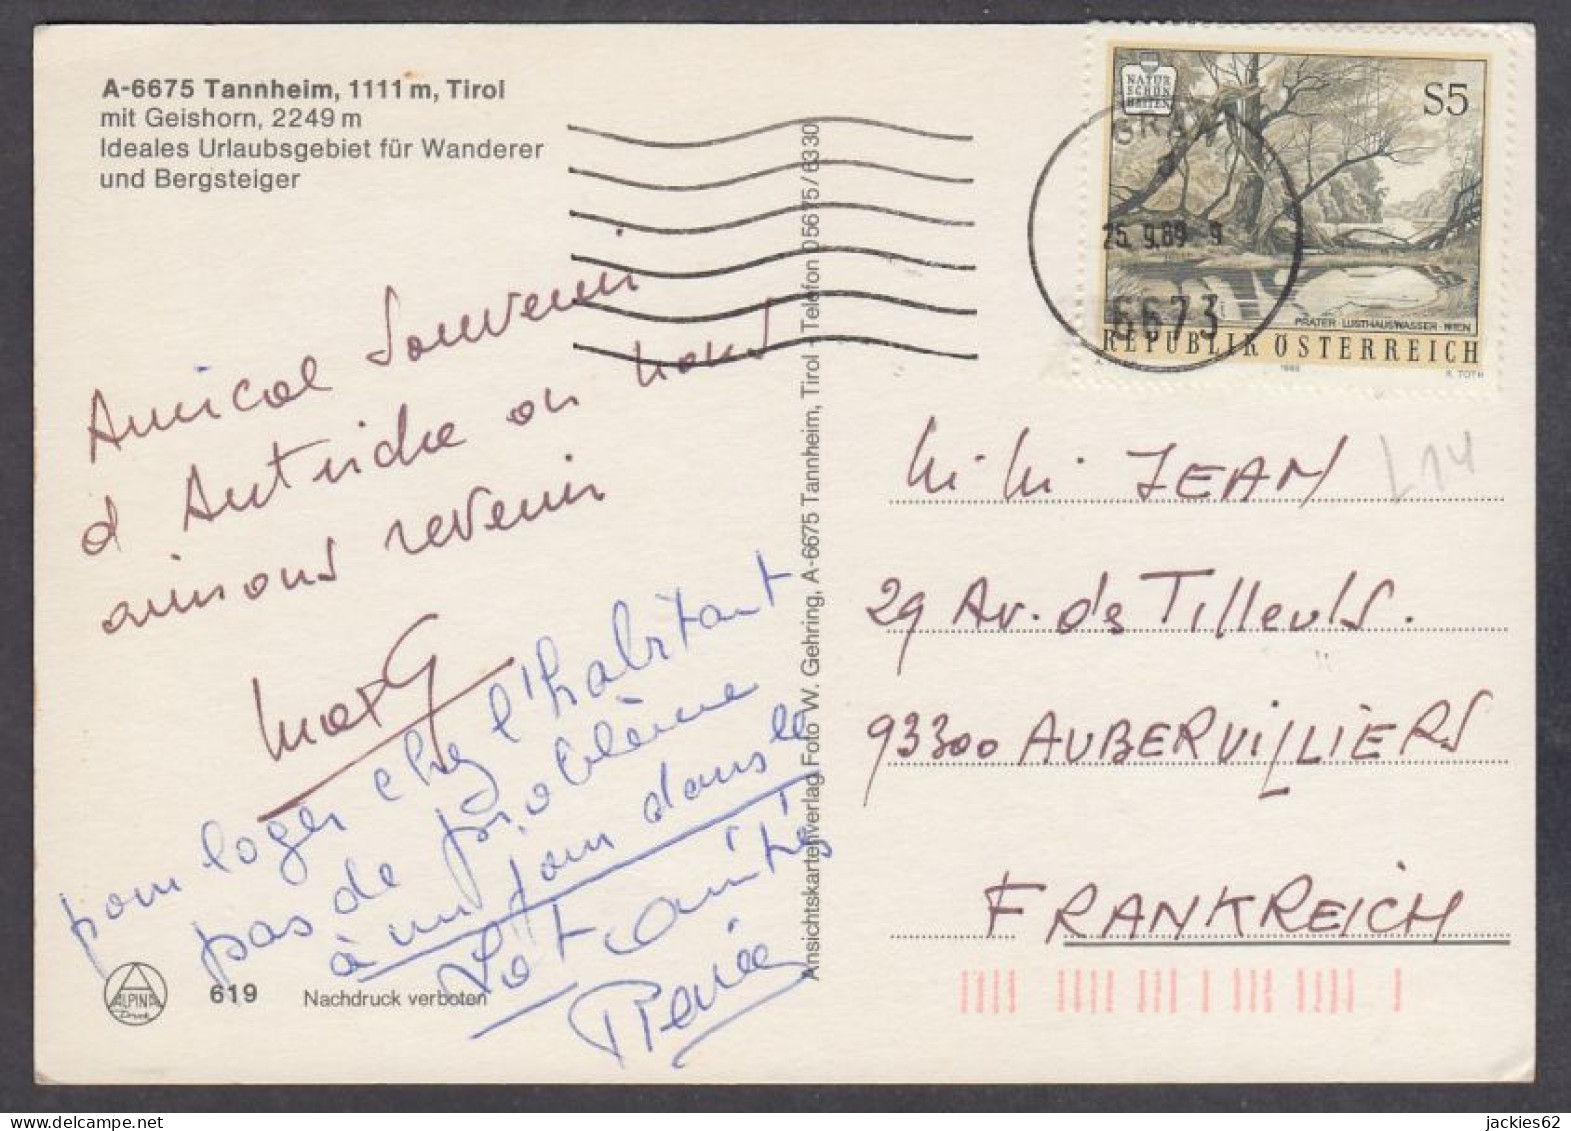 A-6675 Tannheim, 1111 m, Tirol
mit Geishorn, 2249 m
Ideales Urlaubsgebiet für Wanderer
und Bergsteiger
Amical Souvenir
d Autriche où nous
aimons revenir
Max G
pour loger chez l'habitant
pas de problème
à un jour dans le
Lot amitiés
Renée
ALPINA
Druck
619
Nachdruck verboten
Ansichtskartenverlag Foto W. Gehring, A-6675 Tannheim, Tirol - Telefon 05675/6330
NATUR
SCHÖN
HEITEN
S5
GRÄN
25. 9.89 9
6673
PRATER LUSTHAUSWASSER WIEN
REPUBLIK ÖSTERREICH
1989
A. TOTH
Kiki JEAN
L14
29 Av. des Tilleuls.
93300 AUBERVILLIERS
FRANKREICH
jackies62